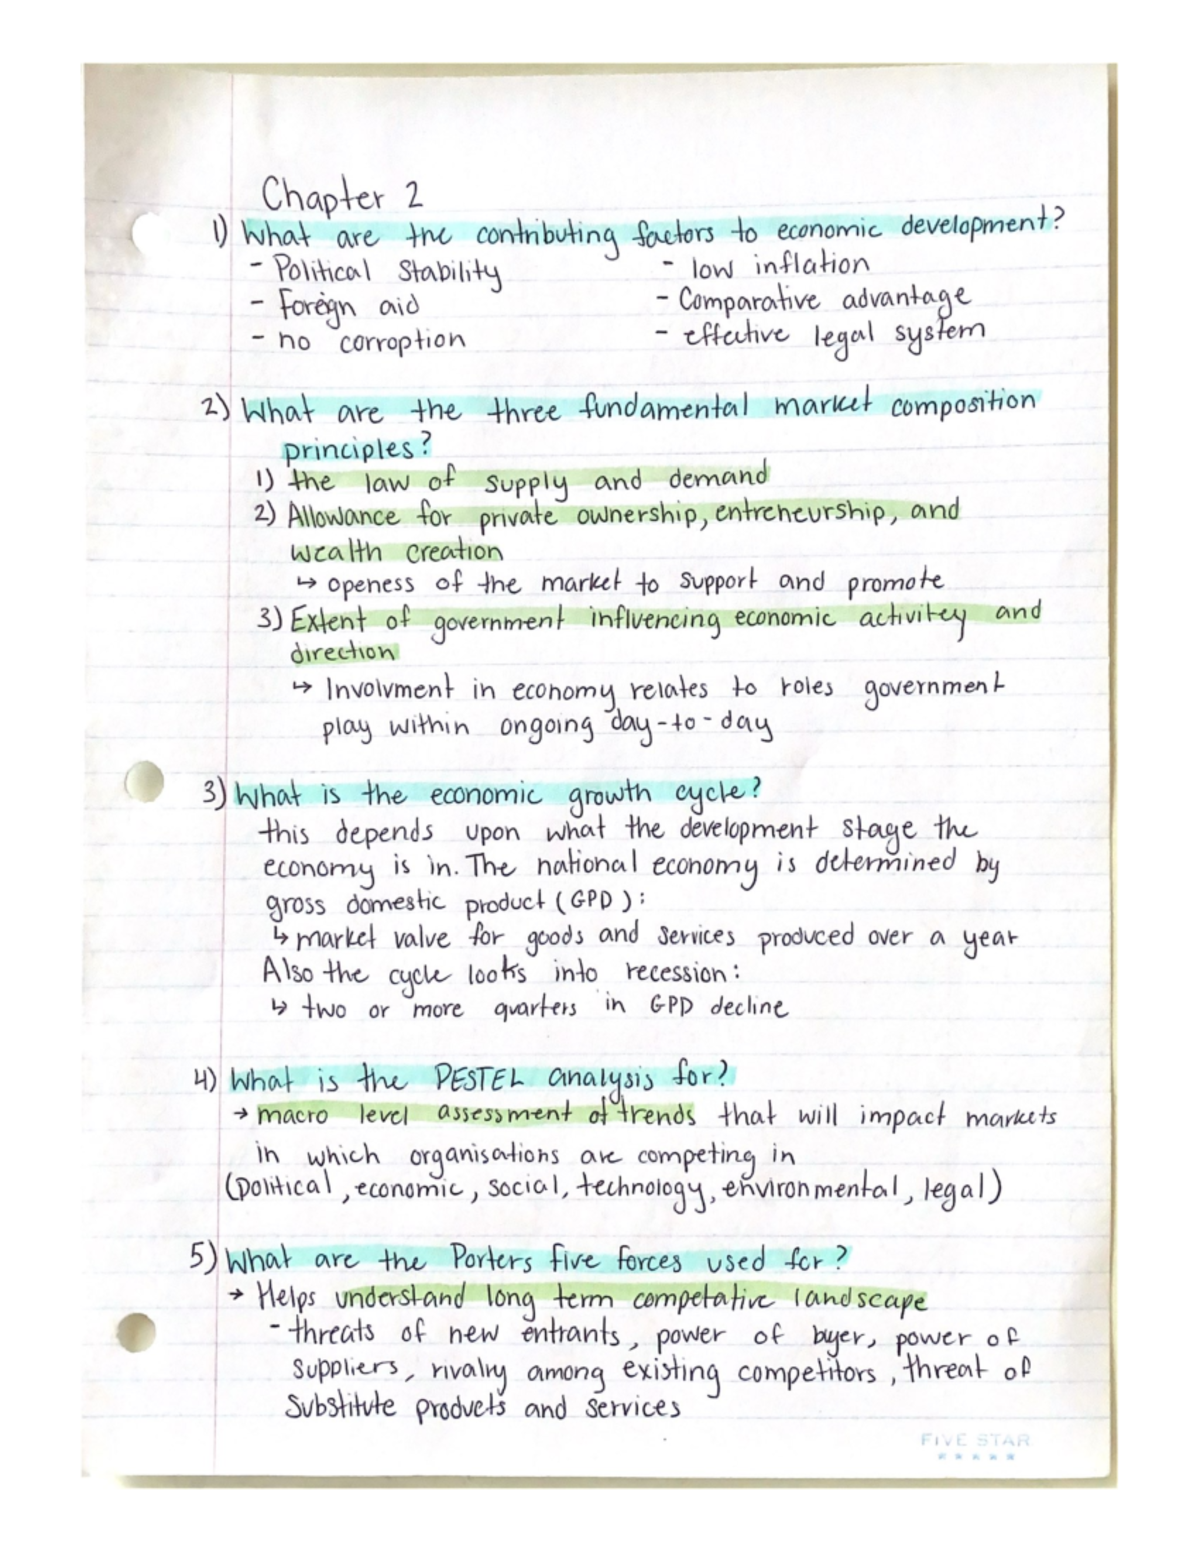 Chapter 2
1) What are the contributing factors to economic development?
- Political Stability - low inflation
- Foreign aid - Comparative advantage
- no corroption - effective legal system
2) What are the three fundamental market composition
principles?
1) the law of supply and demand
2) Allowance for private ownership, entreneurship, and
wealth creation
↳ openess of the market to support and promote
3) Extent of government influencing economic activitey and
direction
↳ Involvment in economy relates to roles government
play within ongoing day-to-day
3) What is the economic growth cycle?
this depends upon what the development stage the
economy is in. The national economy is determined by
gross domestic product (GPD):
↳ market value for goods and services produced over a year
Also the cycle looks into recession:
↳ two or more quarters in GPD decline
4) What is the PESTEL analysis for?
→ macro level assessment of trends that will impact markets
in which organisations are competing in
(political, economic, social, technology, environmental, legal)
5) What are the Porters five forces used for?
→ Helps understand long term competative landscape
- threats of new entrants, power of byer, power of
suppliers, rivalry among existing competitors, threat of
substitute products and services
FIVE STAR
★★★★★